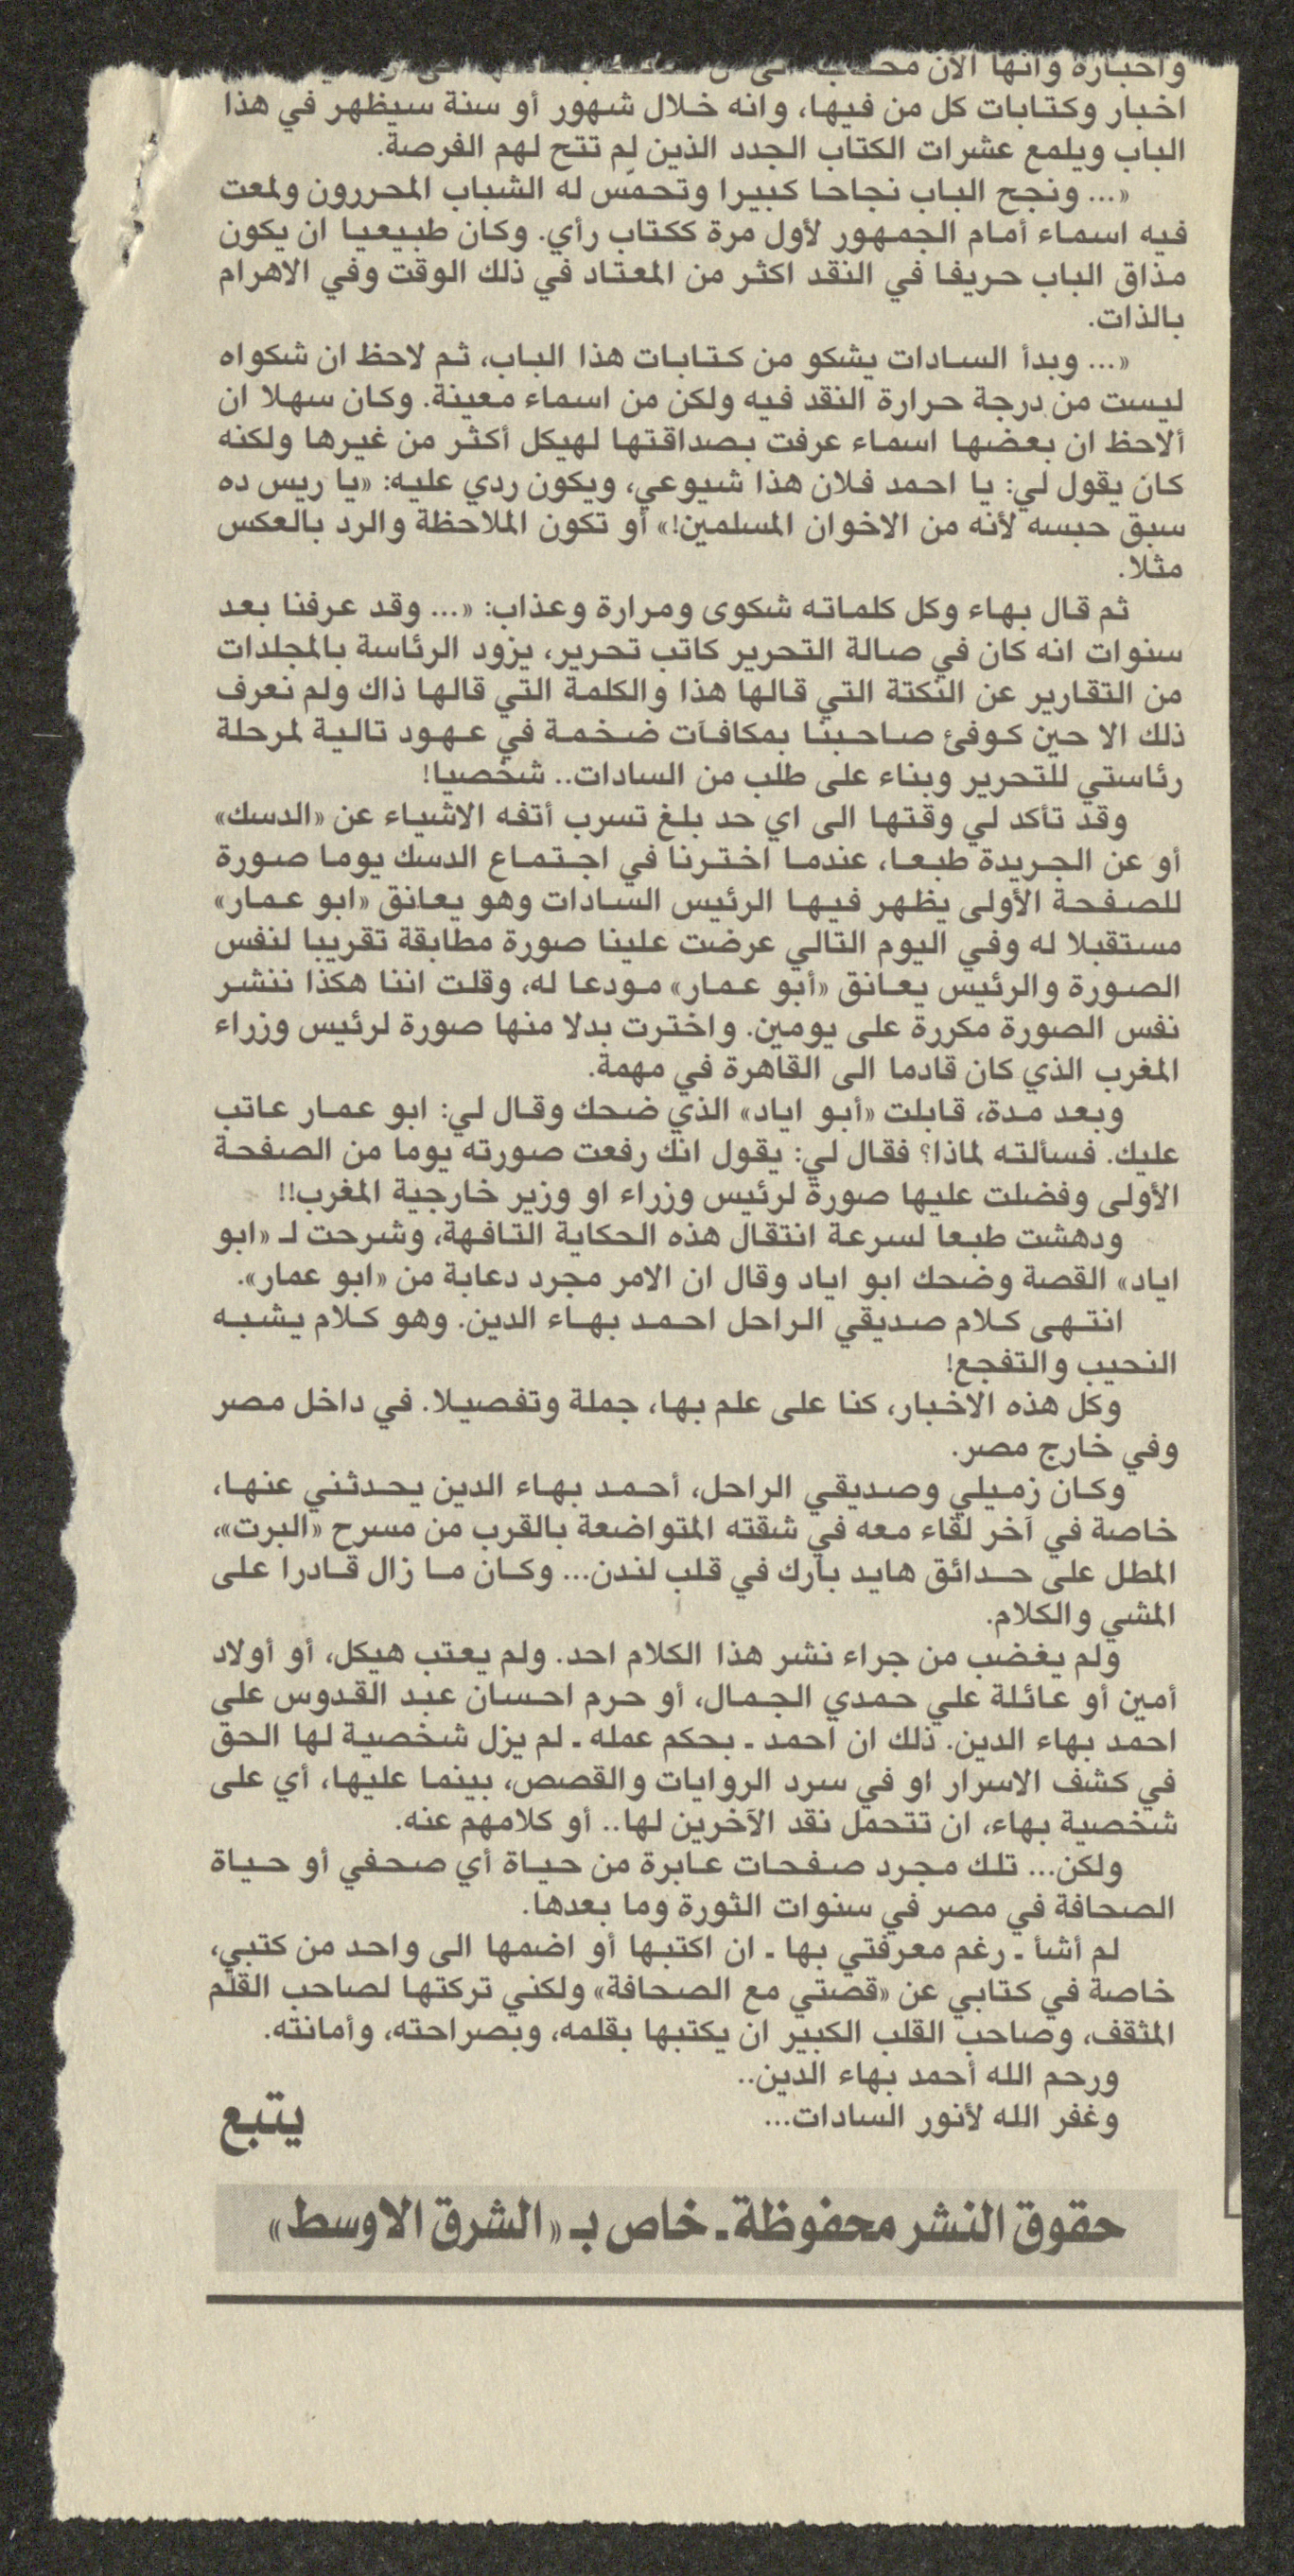 واخباره وانها الآن
اخبار وكتابات كل من فيها، وانه خلال شهور أو سنة سيظهر في هذا
الباب ويلمع عشرات الكتاب الجدد الذين لم تتح لهم الفرصة.
«... ونجح الباب نجاحا كبيرا وتحمّس له الشباب المحررون ولمعت
فيه اسماء أمام الجمهور لأول مرة ككتاب رأي. وكان طبيعيا ان يكون
مذاق الباب حريفا في النقد اكثر من المعتاد في ذلك الوقت وفي الاهرام
بالذات.
«... وبدأ السادات يشكو من كتابات هذا الباب، ثم لاحظ ان شكواه
ليست من درجة حرارة النقد فيه ولكن من اسماء معينة. وكان سهلا ان
ألاحظ ان بعضها اسماء عرفت بصداقتها لهيكل أكثر من غيرها ولكنه
كان يقول لي: يا احمد فلان هذا شيوعي، ويكون ردي عليه: «يا ريس ده
سبق حبسه لأنه من الاخوان المسلمين!» أو تكون الملاحظة والرد بالعكس
مثلا.
ثم قال بهاء وكل كلماته شكوى ومرارة وعذاب: «... وقد عرفنا بعد
سنوات انه كان في صالة التحرير كاتب تحرير، يزود الرئاسة بالمجلدات
من التقارير عن النكتة التي قالها هذا والكلمة التي قالها ذاك ولم نعرف
ذلك الا حين كوفئ صاحبنا بمكافآت ضخمة في عهود تالية لمرحلة
رئاستي للتحرير وبناء على طلب من السادات.. شخصيا!
وقد تأكد لي وقتها الى اي حد بلغ تسرب أتفه الاشياء عن «الدسك»
أو عن الجريدة طبعا، عندما اخترنا في اجتماع الدسك يوما صورة
للصفحة الأولى يظهر فيها الرئيس السادات وهو يعانق «ابو عمار»
مستقبلا له وفي اليوم التالي عرضت علينا صورة مطابقة تقريبا لنفس
الصورة والرئيس يعانق «أبو عمار» مودعا له، وقلت اننا هكذا ننشر
نفس الصورة مكررة على يومين. واخترت بدلا منها صورة لرئيس وزراء
المغرب الذي كان قادما الى القاهرة في مهمة.
وبعد مدة، قابلت «أبو اياد» الذي ضحك وقال لي: ابو عمار عاتب
عليك. فسألته لماذا؟ فقال لي: يقول انك رفعت صورته يوما من الصفحة
الأولى وفضلت عليها صورة لرئيس وزراء او وزير خارجية المغرب!!
ودهشت طبعا لسرعة انتقال هذه الحكاية التافهة، وشرحت لـ «ابو
اياد» القصة وضحك ابو اياد وقال ان الامر مجرد دعابة من «ابو عمار».
انتهى كلام صديقي الراحل احمد بهاء الدين. وهو كلام يشبه
النحيب والتفجع!
وكل هذه الاخبار، كنا على علم بها، جملة وتفصيلا. في داخل مصر
وفي خارج مصر.
وكان زميلي وصديقي الراحل، أحمد بهاء الدين يحدثني عنها،
خاصة في آخر لقاء معه في شقته المتواضعة بالقرب من مسرح «البرت»،
المطل على حدائق هايد بارك في قلب لندن... وكان ما زال قادرا على
المشي والكلام.
ولم يغضب من جراء نشر هذا الكلام احد. ولم يعتب هيكل، أو أولاد
أمين أو عائلة علي حمدي الجمال، أو حرم احسان عبد القدوس على
احمد بهاء الدين. ذلك ان احمد ـ بحكم عمله ـ لم يزل شخصية لها الحق
في كشف الاسرار او في سرد الروايات والقصص، بينما عليها، أي على
شخصية بهاء، ان تتحمل نقد الآخرين لها.. أو كلامهم عنه.
ولكن... تلك مجرد صفحات عابرة من حياة أي صحفي أو حياة
الصحافة في مصر في سنوات الثورة وما بعدها.
لم أشأ ـ رغم معرفتي بها ـ ان اكتبها أو اضمها الى واحد من كتبي،
خاصة في كتابي عن «قصتي مع الصحافة» ولكني تركتها لصاحب القلم
المثقف، وصاحب القلب الكبير ان يكتبها بقلمه، وبصراحته، وأمانته.
ورحم الله أحمد بهاء الدين..
وغفر الله لأنور السادات...
يتبع
حقوق النشر محفوظة ـ خاص بـ «الشرق الاوسط»